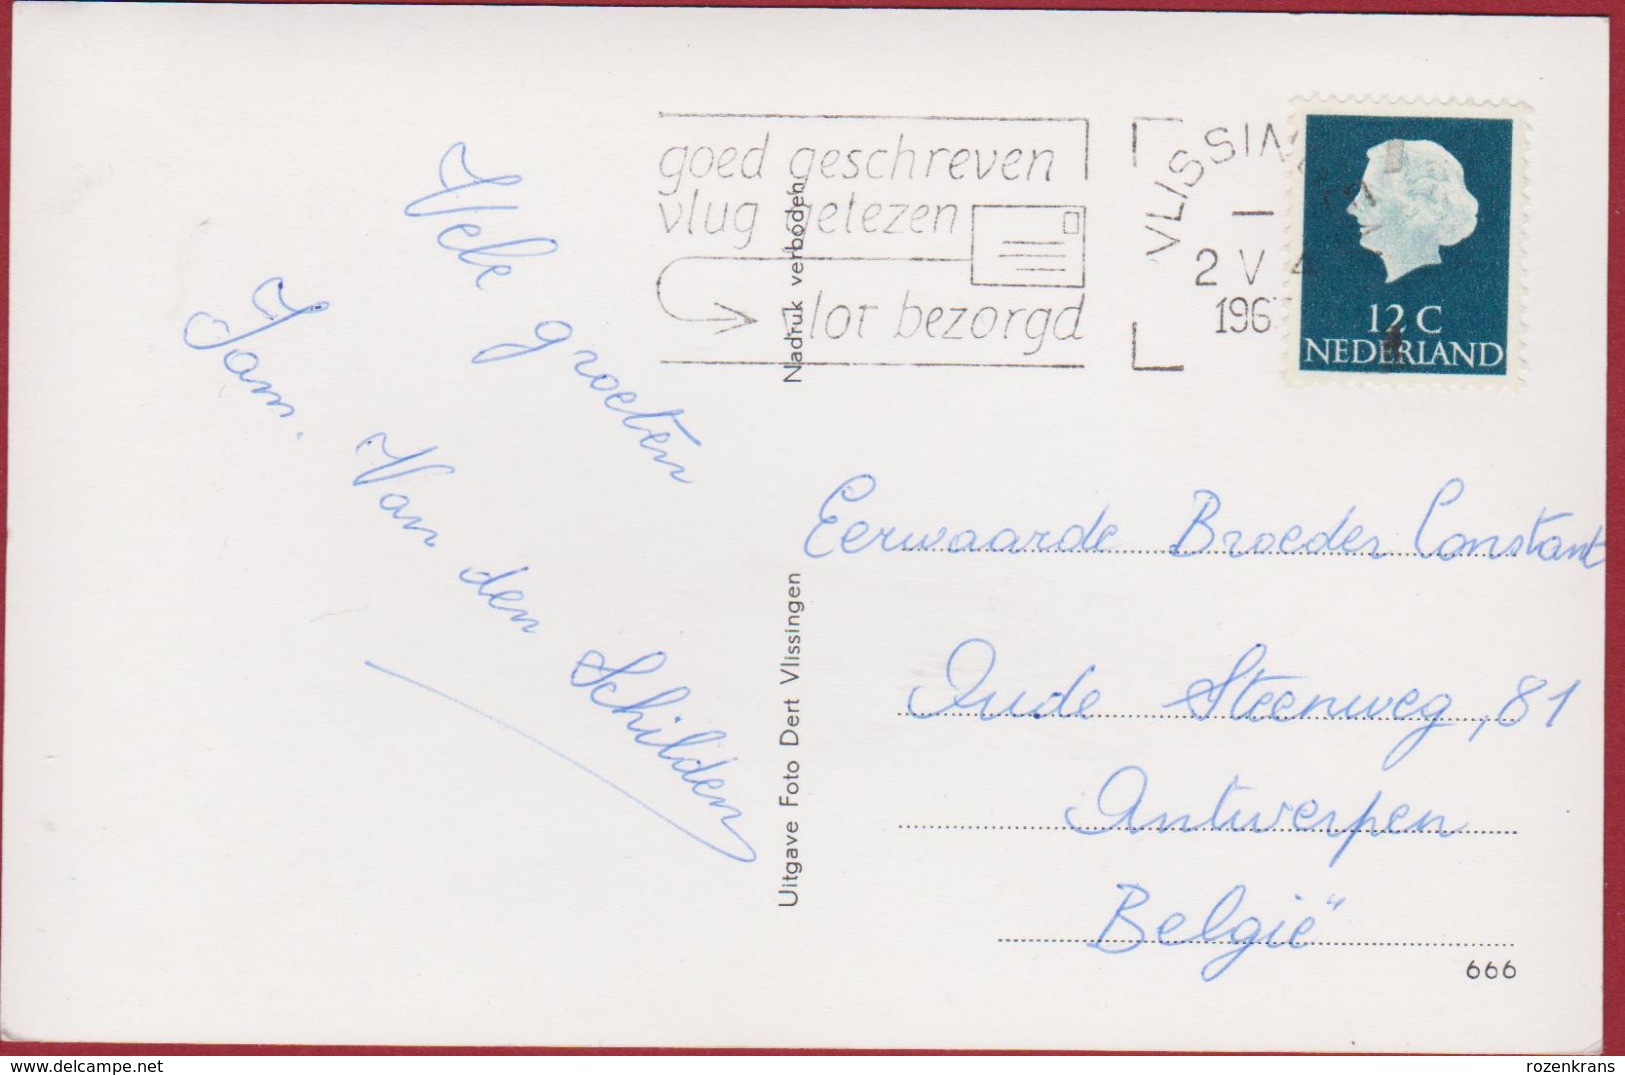 goed geschreven
vlug gelezen
vlot bezorgd
VLISSIN
2 V 4
196
12 C
NEDERLAND
Vele groeten
Jam. Van den Schilden
Nadruk verboden
Uitgave Foto Dert Vlissingen
Eerwaarde Broeder Constant
Oude Steenweg, 81
Antwerpen
België
666
delcampe.net
rozenkrans